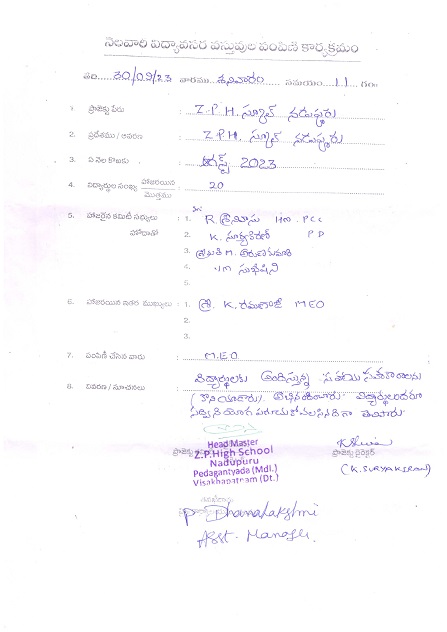 నెలవారి విద్యావసర వస్తువుల పంపిణి కార్యక్రమం
తేది 30/09/23 వారము శనివారం సమయం 11 గం.
1. ప్రాజెక్టు పేరు : Z.P.H. స్కూల్ నడుపూరు
2. ప్రదేశము / ఆవరణ : Z.P.H. స్కూల్ నడుపూరు
3. ఏ నెల కొరకు : ఆగస్ట్ 2023
4. విద్యార్థుల సంఖ్య హాజరయిన / మొత్తము : 20
5. హాజరైన కమిటీ సభ్యులు : 1. R. శ్రీనివాసు HM. PCC
హోదాతో 2. K. సూర్యకిరణ్ P D
3. శ్రీమతి M. అరుణకుమారి
4. సుభాషిని
5.
6. హాజరయిన ఇతర ముఖ్యులు : 1. శ్రీ. K. రమణాజీ MEO
2.
3.
7. పంపిణీ చేసిన వారు : M.E.O
8. వివరణ / సూచనలు : విద్యార్థులకు అందిస్తున్న సహాయ సహకారాలను
విద్యార్థులందరూ
Head Master
Z.P.High School
Nadupuru
Pedagantyada (Mdl.)
Visakhapatnam (Dt.)
ప్రాజెక్టు డైరెక్టర్
(K.SURYAKIRAN)
P Dhanalakshmi
Asst. Manager